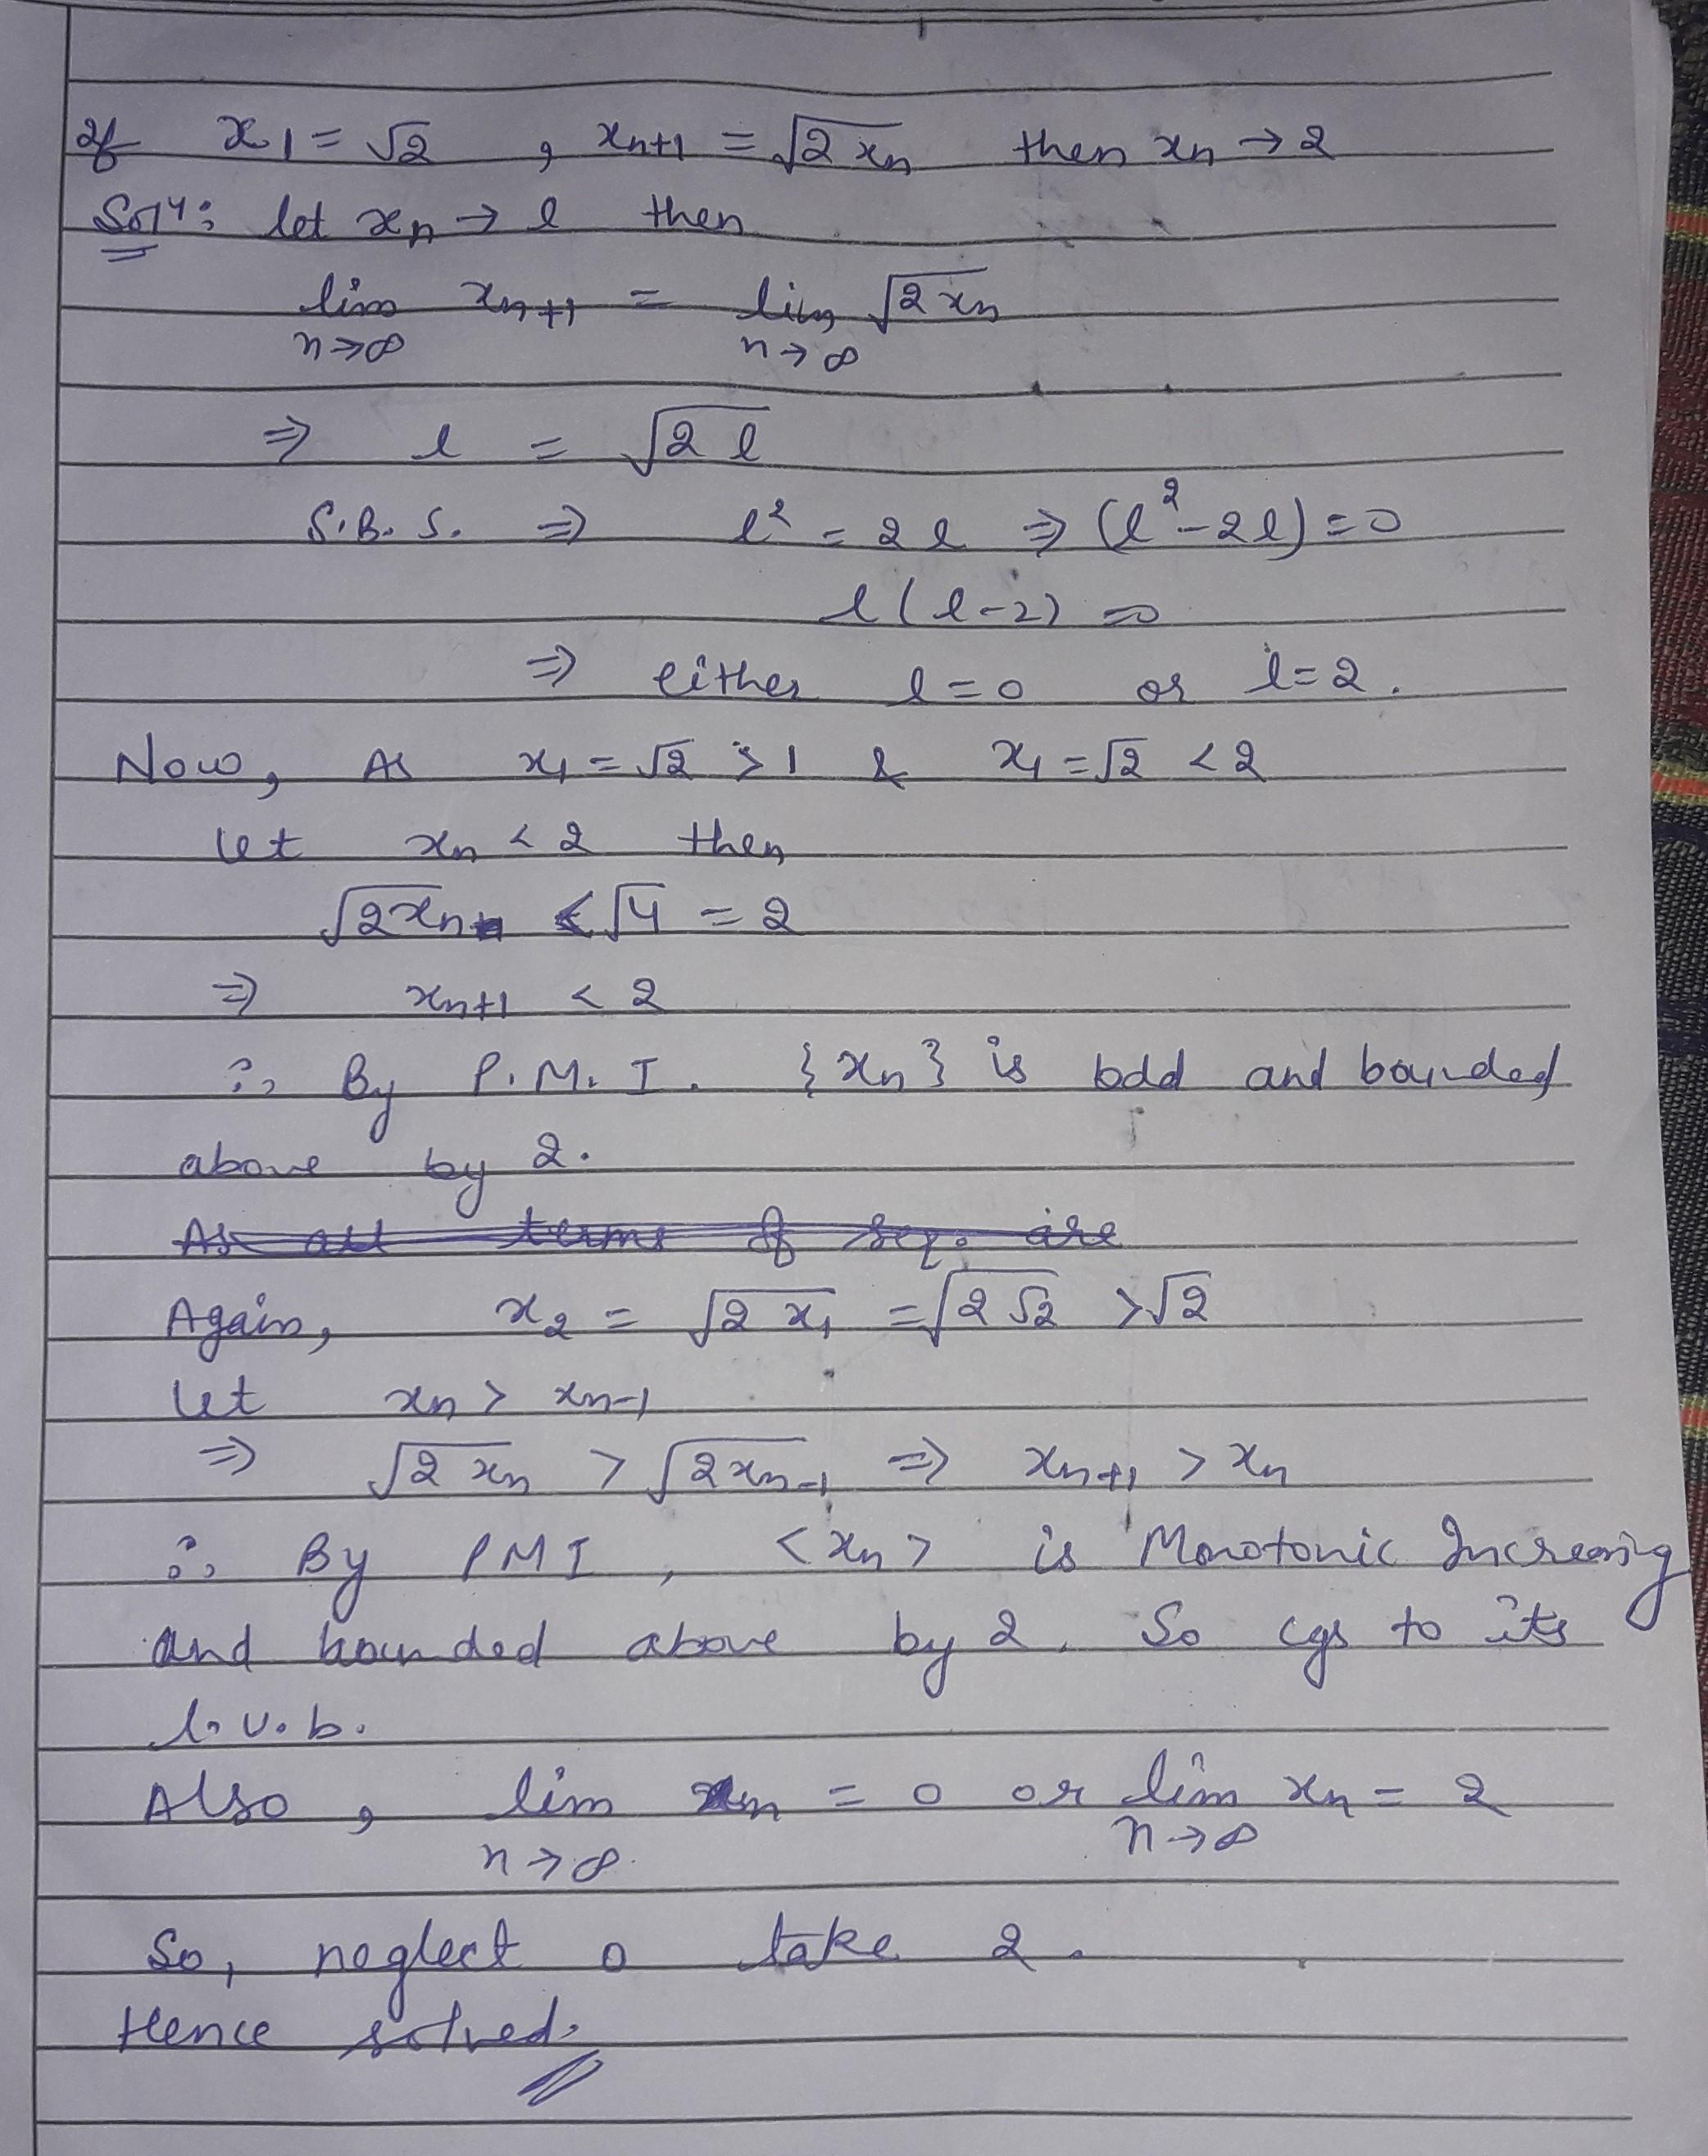 If x₁ = √2 , xₙ₊₁ = √(2xₙ) then xₙ → 2
Solⁿ: let xₙ → l then
lim xₙ₊₁ = lim √(2xₙ)
n→∞ n→∞
⇒ l = √(2l)
S.B.S. ⇒ l² = 2l ⇒ (l²-2l)=0
l(l-2) =0
⇒ either l=0 or l=2.
Now, As x₁ = √2 > 1 & x₁ = √2 < 2
let xₙ < 2 then
√(2xₙ) < √4 = 2
⇒ xₙ₊₁ < 2
∴ By P.M.I. {xₙ} is bdd and bounded
above by 2.
As all terms of seq. are
Again, x₂ = √(2x₁) = √(2√2) > √2
let xₙ > xₙ₋₁
⇒ √(2xₙ) > √(2xₙ₋₁) ⇒ xₙ₊₁ > xₙ
∴ By PMI, <xₙ> is Monotonic Increasing
and bounded above by 2. So cgs to its
l.u.b.
Also, lim xₙ = 0 or lim xₙ = 2
n→∞ n→∞
So, neglect 0 take 2.
Hence solved.